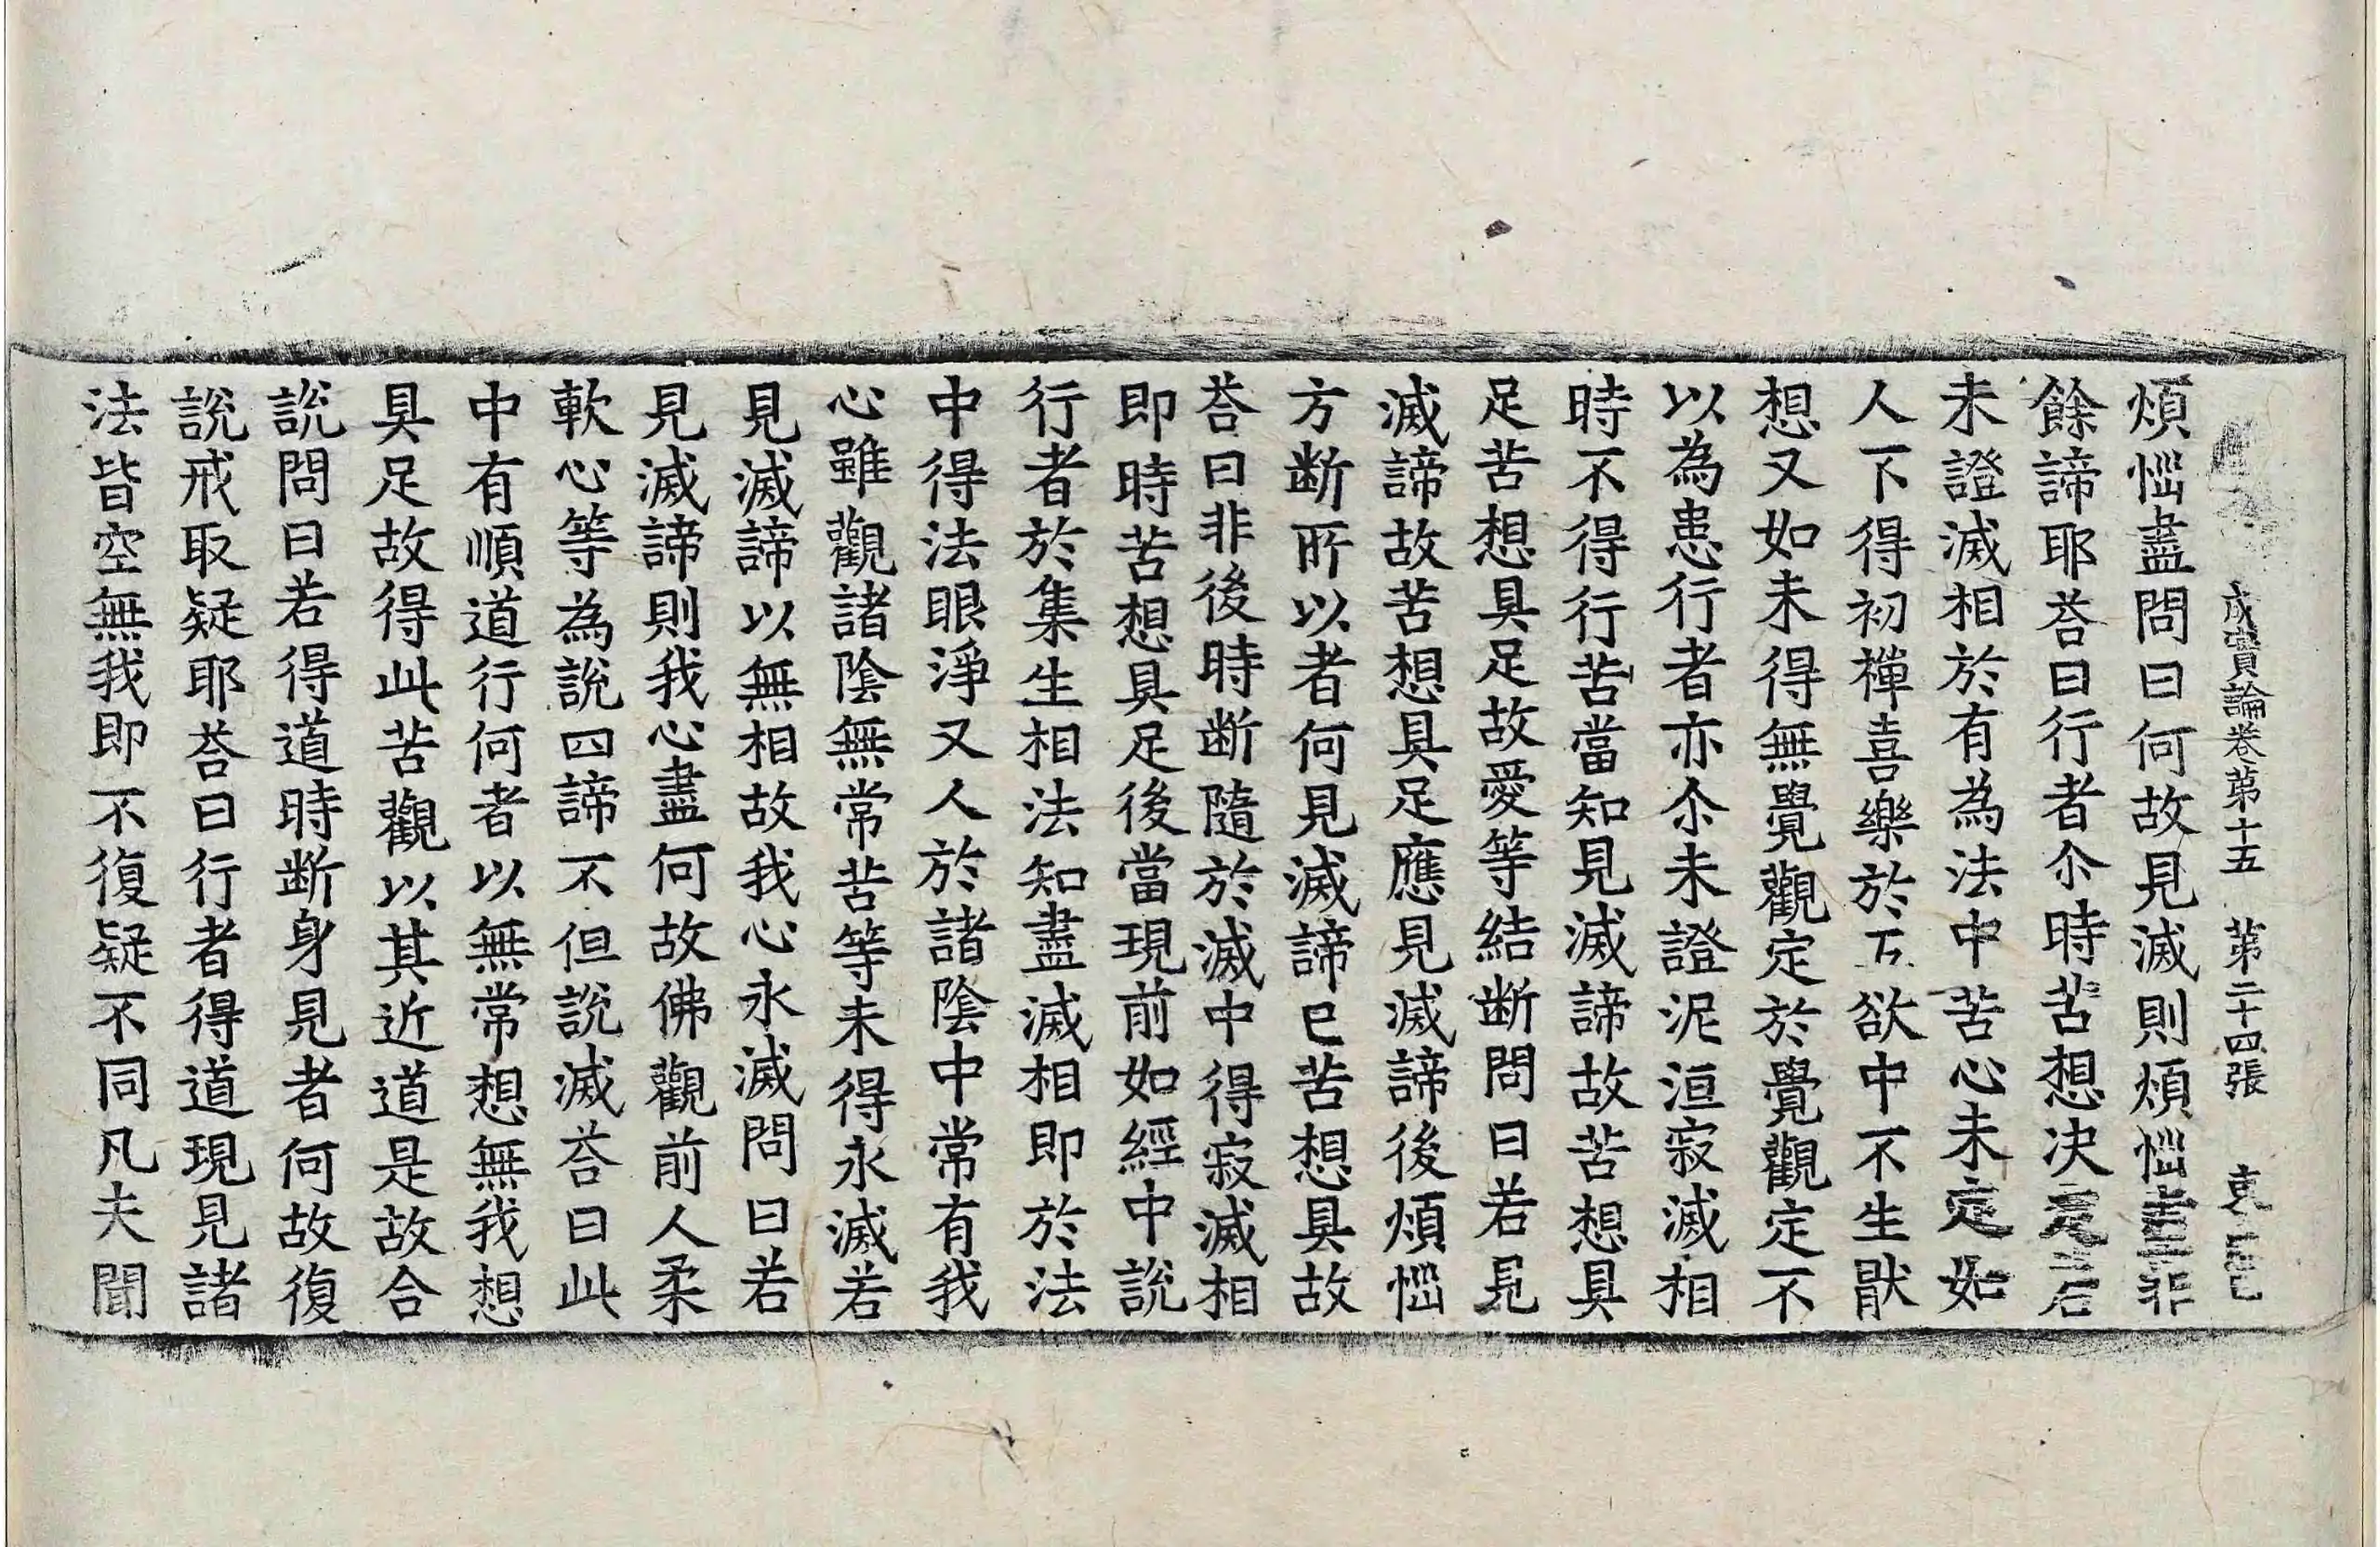 成實論卷第十五 第二十四張
煩惱盡問曰何故見滅則煩惱盡非
餘諦耶荅曰行者尒時苦想决定若
未證滅相於有為法中苦心未定如
人下得初禪喜樂於五欲中不生猒
想又如未得無覺觀定於覺觀定不
以為患行者亦尒未證泥洹寂滅相
時不得行苦當知見滅諦故苦想具
足苦想具足故愛等結断問曰若見
滅諦故苦想具足應見滅諦後煩惱
方断所以者何見滅諦已苦想具故
荅曰非後時断隨於滅中得寂滅相
即時苦想具足後當現前如經中說
行者於集生相法知盡滅相即於法
中得法眼淨又人於諸陰中常有我
心雖觀諸陰無常苦等未得永滅若
見滅諦以無相故我心永滅問曰若
見滅諦則我心盡何故佛觀前人柔
軟心等為說四諦不但說滅荅曰此
中有順道行何者以無常想無我想
具足故得此苦觀以其近道是故合
說問曰若得道時断身見者何故復
說戒取疑耶荅曰行者得道現見諸
法皆空無我即不復疑不同凡夫聞